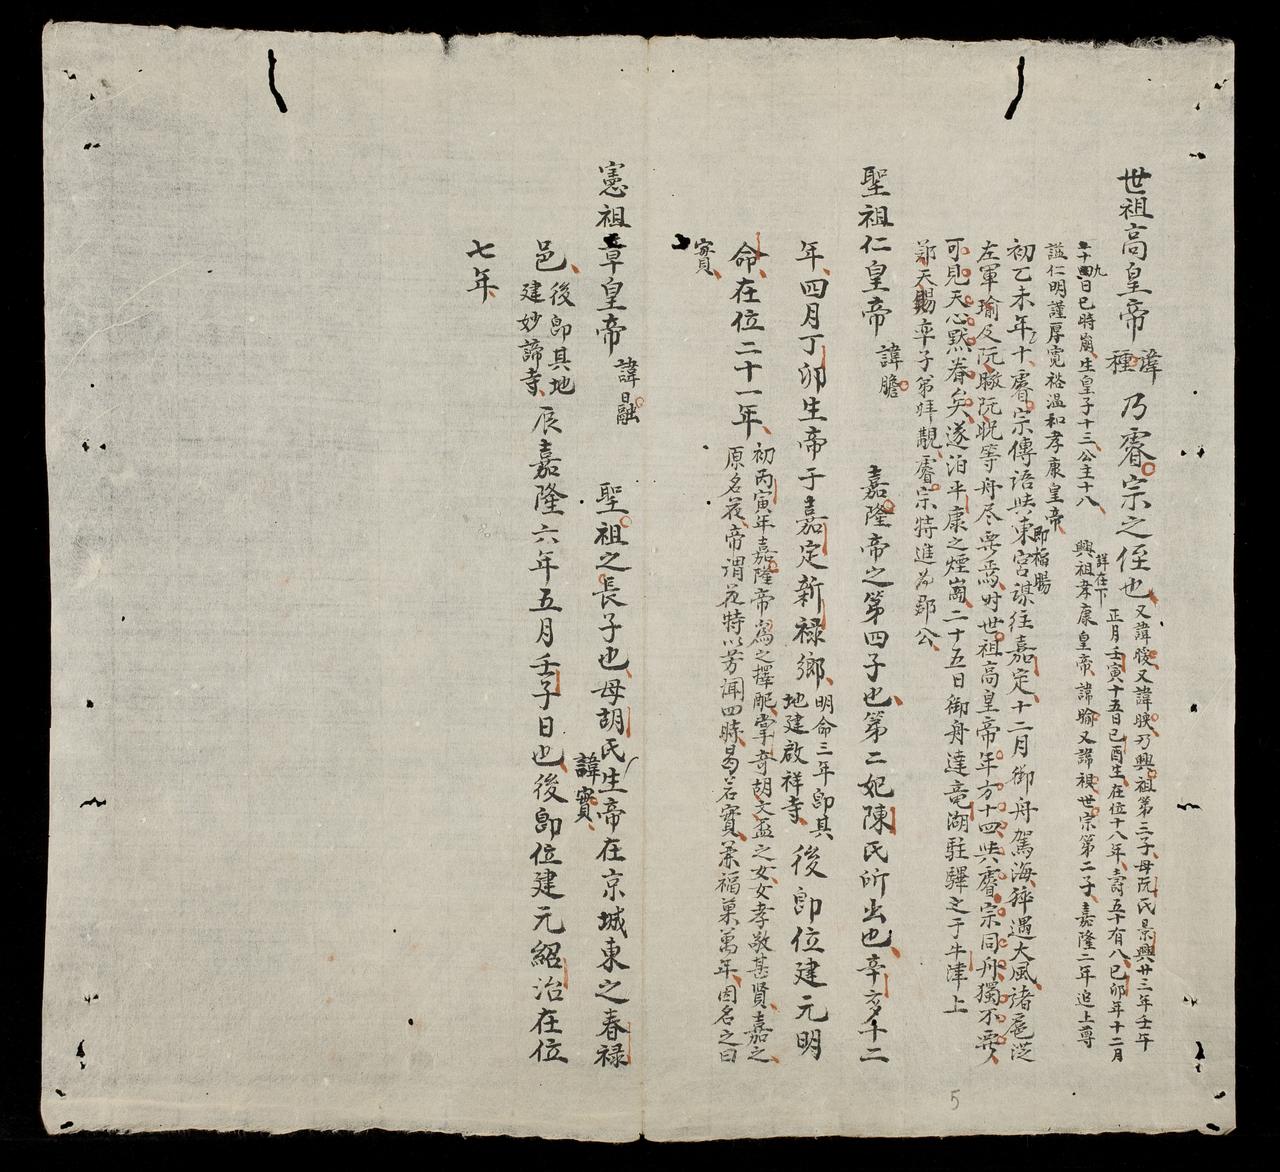 世祖高皇帝 諱種 乃睿宗之侄也 又諱㬉又諱映乃興祖第三子母阮氏景興廿三年壬午
正月壬寅十五日己酉生在位十八年壽五十有八己卯年十二月
二十九日巳時崩生皇子十三公主十八 詳在下 興祖孝康皇帝諱㫻又諱禩世宗第二子嘉隆二年追上尊
謚仁明謹厚寬裕溫和孝康皇帝
初乙未年十睿宗傳語與東宮 即福暘 謀往嘉定十二月御舟駕海猝遇大風諸扈從
左軍瑜及阮㬓阮昵等舟尽要焉时世祖高皇帝年方十四與睿宗同舟獨不要
可見天心默眷矣遂泊平康之煙崗二十五日御舟達竜湖駐驆之于牛津上
鄭天賜卒子第拜覲睿宗特進為郡公
聖祖仁皇帝 諱膽 嘉隆帝之第四子也第二妃陳氏所出也辛亥年二
年四月丁卯生帝于嘉定新祿鄉 明命三年即其地建啟祥寺 後即位建元明
命在位二十一年 初丙寅年嘉隆帝為之擇配掌奇胡文盃之女女孝敬甚賢嘉之
原名花帝謂花特以芳聞四時曷若實兼福菓萬年因名之曰
實
憲祖章皇帝 諱融 聖祖之長子也母胡氏 諱實 生帝在京城東之春祿
邑 後即其地建妙諦寺 辰嘉隆六年五月壬子日也後即位建元紹治在位
七年
5